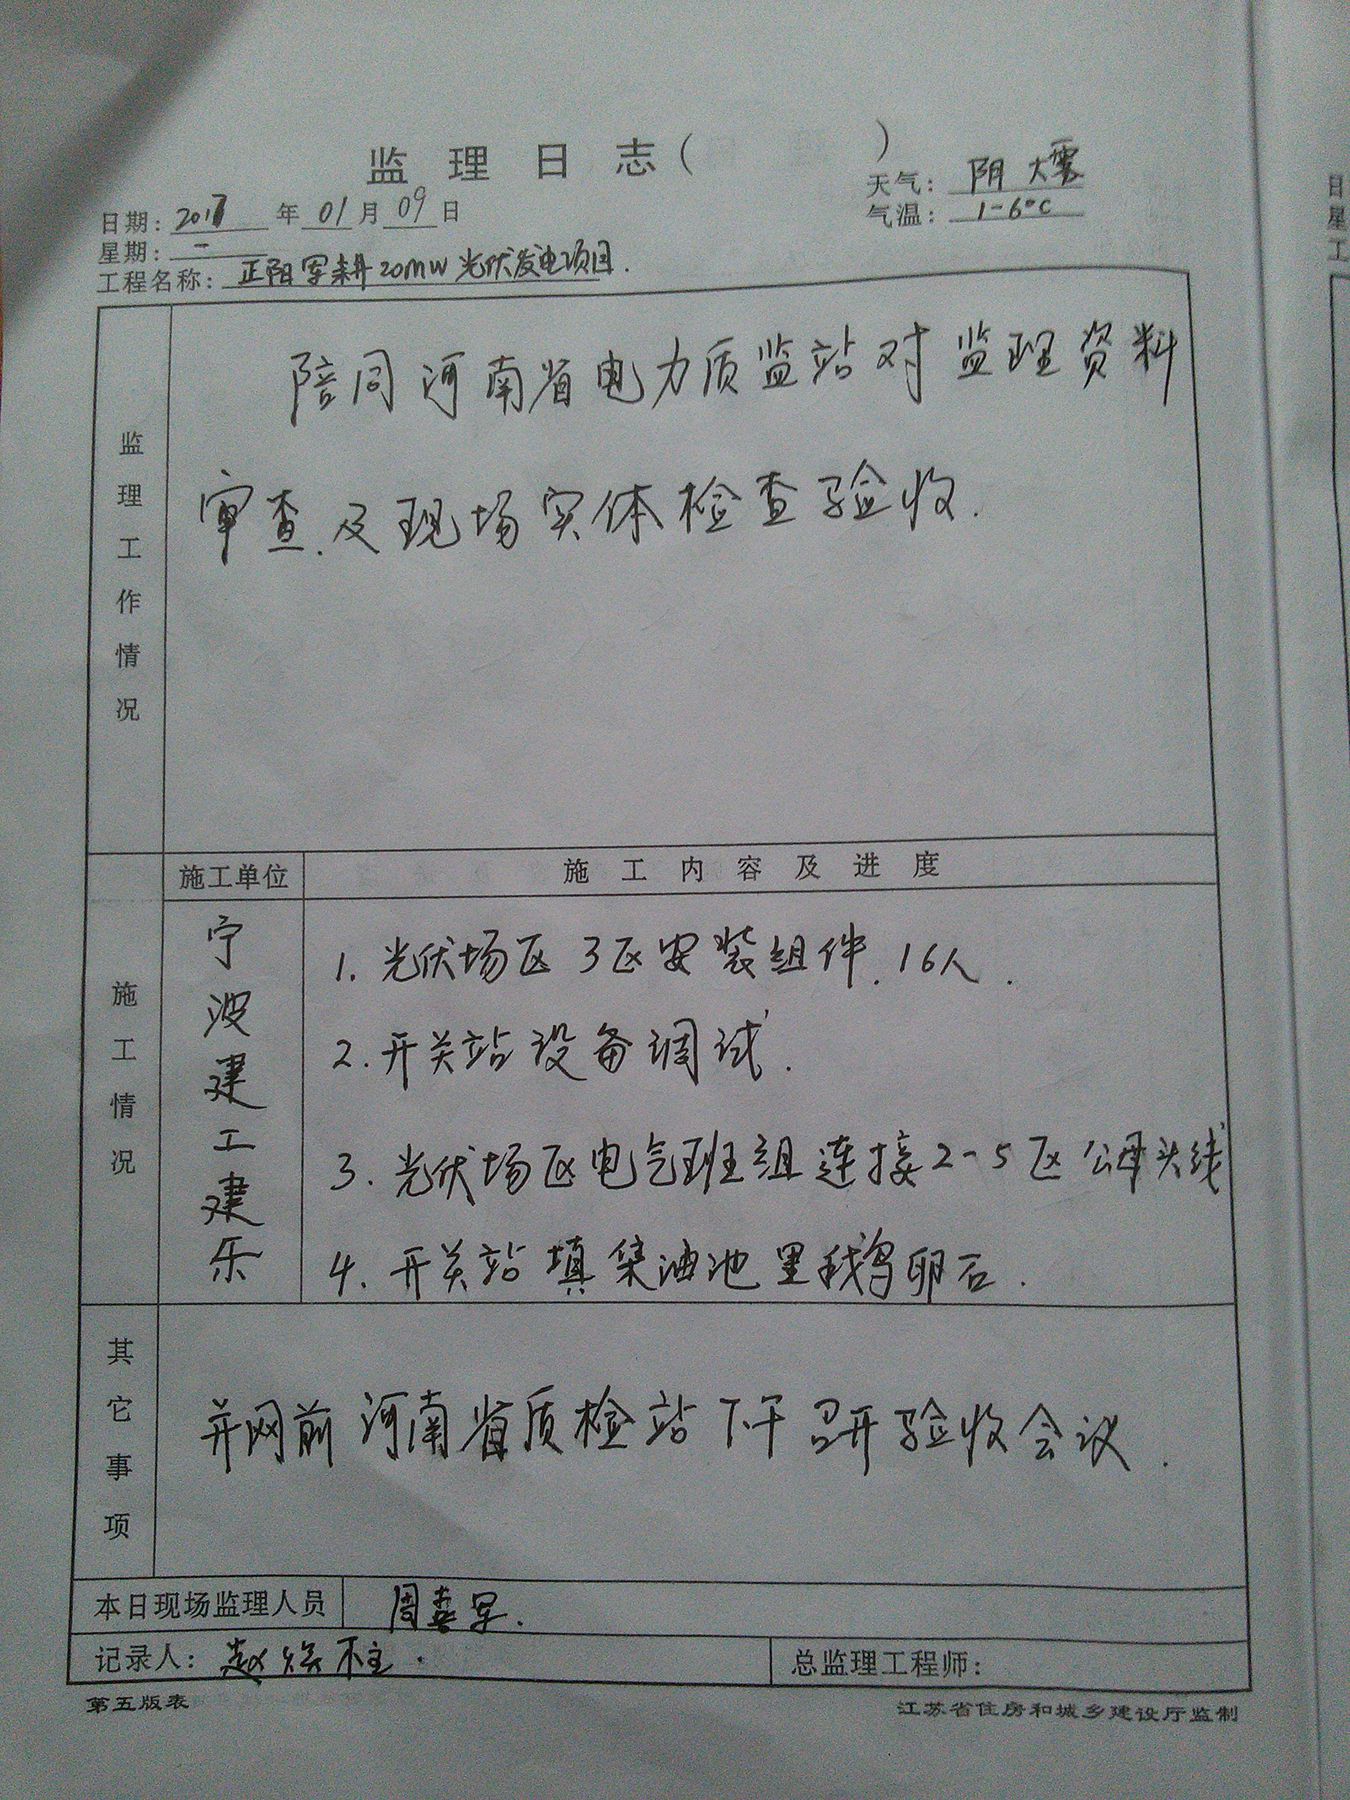 监理日志( )
日期: 2017 年 01 月 09 日
天气: 阴 大雾
星期: 一
气温: 1-6°C
工程名称: 正阳军耕20MW光伏发电项目.
监理工作情况
陪同河南省电力质监站对监理资料
审查.及现场实体检查验收.
施工单位
施工内容及进度
施工情况
宁波建工建乐
1.光伏场区 3区安装组件.16人.
2.开关站设备调试.
3.光伏场区电气班组连接2-5区公母头线
4.开关站填集油池里鹅卵石.
其它事项
并网前河南省质检站下午召开验收会议.
本日现场监理人员 周喜军.
记录人: 赵焕柱.
总监理工程师:
第五版表
江苏省住房和城乡建设厅监制
日
星
工